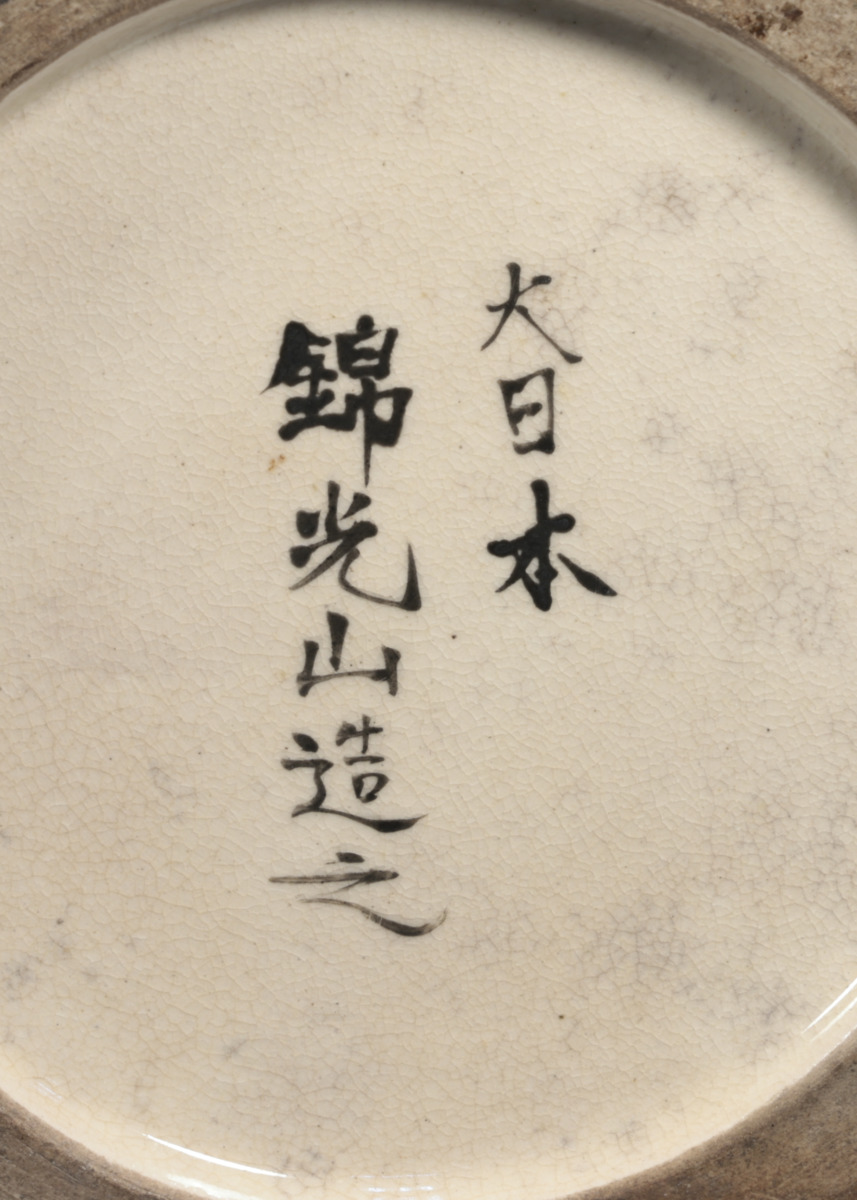 大日本
錦光山造之